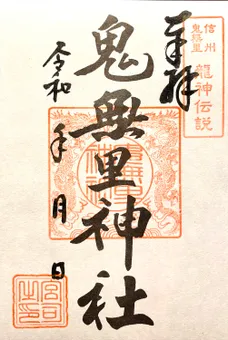 信州
鬼無里
龍神伝説
奉拝
鬼無里神社
令和 年 月 日